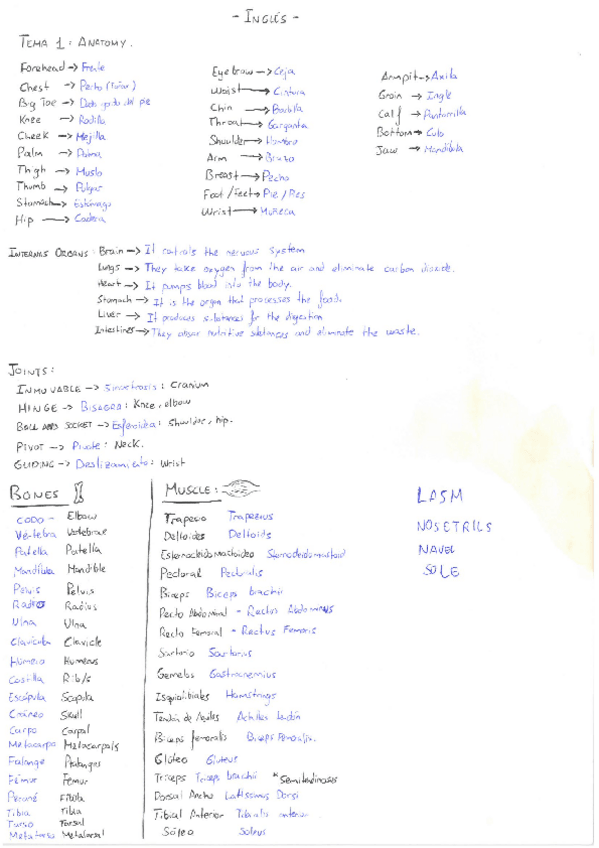 - INGLÉS -
TEMA 1: ANATOMY.
Forehead → Frente
Chest → Pecho (Torax)
Big Toe → Dedo gordo del pie
Knee → Rodilla
Cheek → Mejilla
Palm → Palma
Thigh → Muslo
Thumb → Pulgar
Stomach → Estómago
Hip → Cadera
Eyebrow → Ceja
Waist → Cintura
Chin → Barbilla
Throat → Garganta
Shoulder → Hombro
Arm → Brazo
Breast → Pecho
Foot / Feet → Pie / Pies
Wrist → Muñeca
Armpit → Axila
Groin → Ingle
Calf → Pantorrilla
Bottom → Culo
Jaw → Mandíbula
INTERNAL ORGANS: Brain → It controls the nervous system
Lungs → They take oxygen from the air and eliminate carbon dioxide.
Heart → It pumps blood into the body.
Stomach → It is the organ that processes the food.
Liver → It produces substances for the digestion
Intestines → They absor nutritive substances and eliminate the waste.
JOINTS:
INMUVABLE → Sinartrosis: Cranium
HINGE → BISAGRA: Knee, elbow
BALL AND SOCKET → Esferoidea: Shoulder, hip.
PIVOT → Pivote: Neck.
GLIDING → Deslizamiento: Wrist
BONES
CODO - Elbow
Vértebra Vertebrae
Patella Patella
Mandíbula Mandible
Pelvis Pelvis
Radio Radius
Ulna Ulna
Clavícula Clavicle
Húmero Humerus
Costilla Rib/s
Escápula Scapula
Cráneo Skull
Carpo Carpal
Metacarpo Metacarpals
Falange Phalanges
Fémur Femur
Peroné Fibula
Tibia Tibia
Tarso Tarsal
Metatarso Metatarsal
MUSCLE:
Trapecio Trapezius
Deltoides Deltoids
Esternocleidomastoideo Sternocleidomastoid
Pectoral Pectoralis
Biceps Biceps brachii
Recto Abdominal - Rectus Abdominus
Recto Femoral - Rectus Femoris
Sartorio Sartorius
Gemelos Gastrocnemius
Isquiotibiales Hamstrings
Tendón de Aquiles Achilles tendón
Biceps femoralis Biceps Femoralis.
Glúteo Gluteus
Triceps Triceps brachii *Semitendinosus
Dorsal Ancho Latissimus Dorsi
Tibial Anterior Tibialis anterior
Sóleo Soleus
LASM
NOSETRILS
NAVEL
SOLE